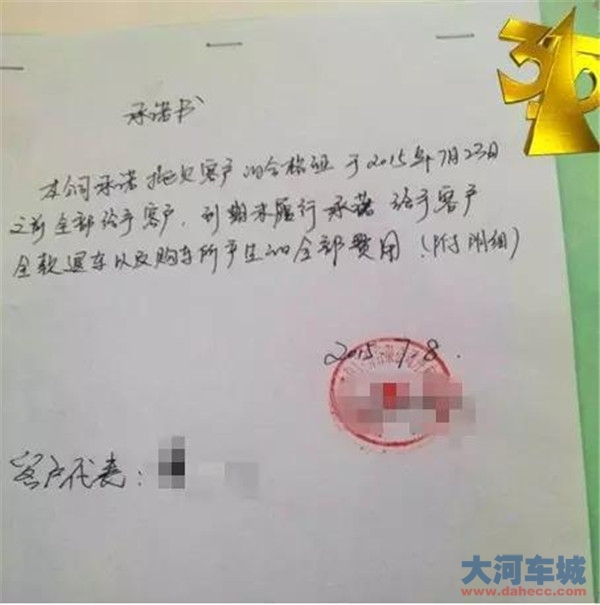 315
承诺书
本公司承诺拖欠客户的合格证于2015年7月23日
之前全部给予客户,到期未履行承诺给予客户
全款退车以及购车所产生的全部费用(附明细)
2015 7 8.
客户代表:
大河车城
www.dahecc.com